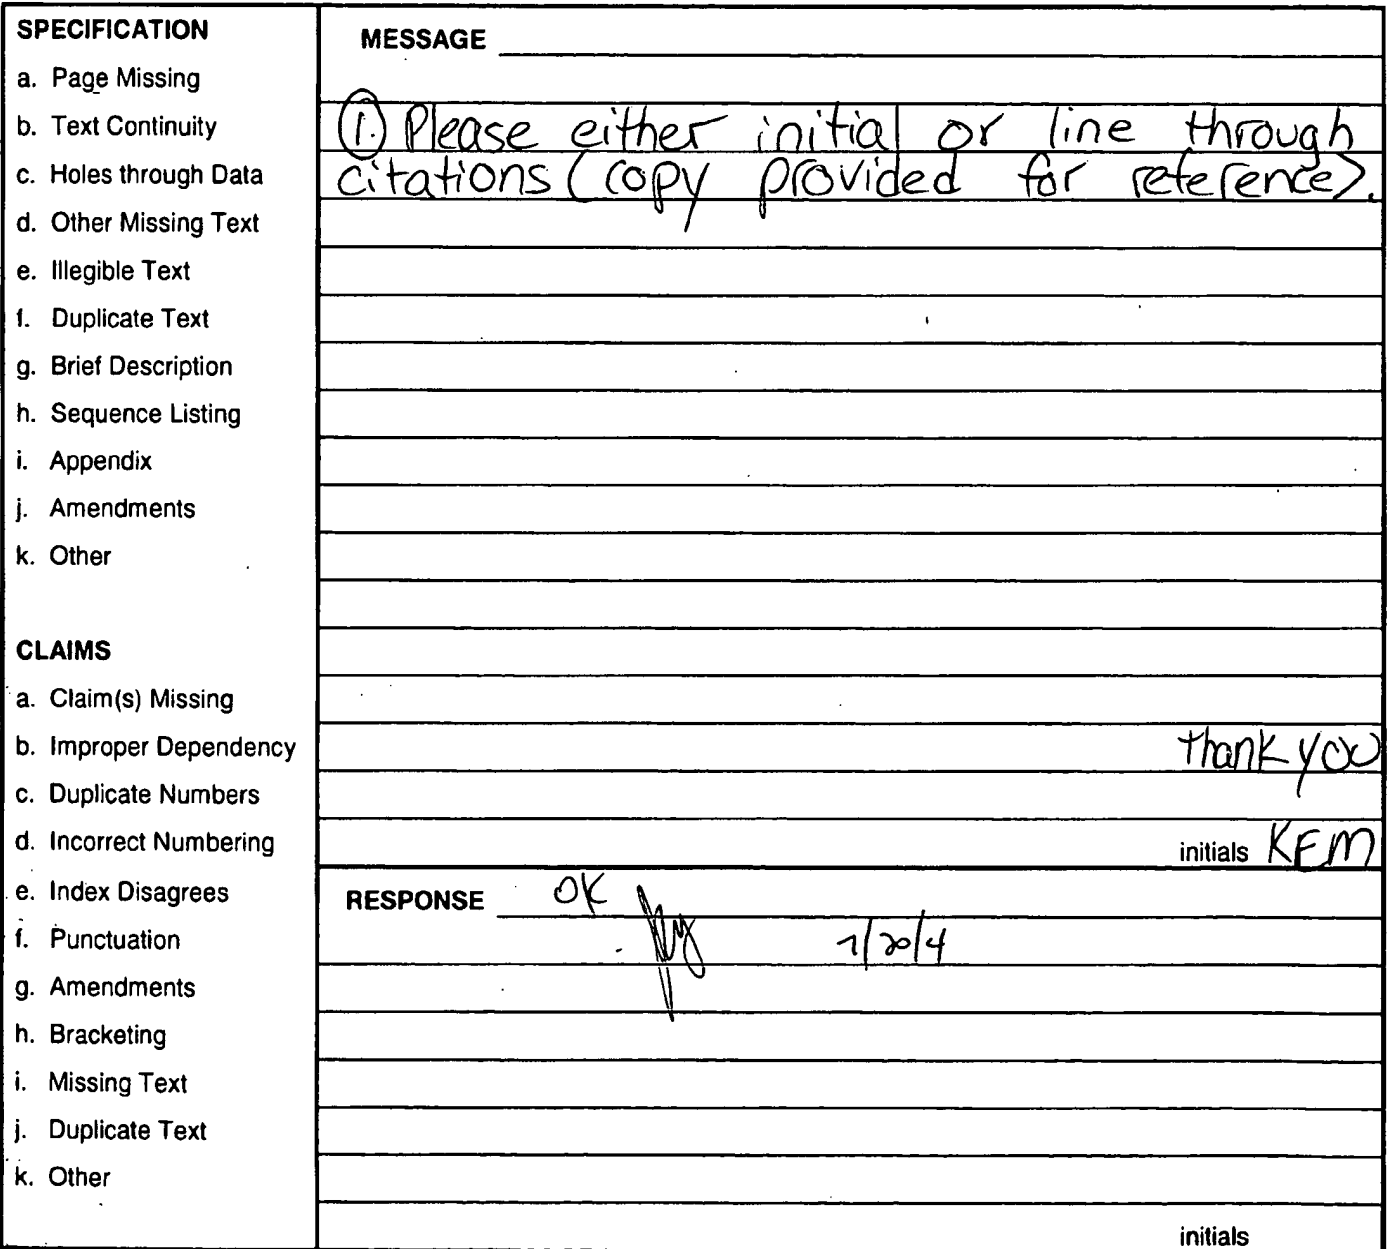 SPECIFICATION
a. Page Missing
b. Text Continuity
c. Holes through Data
d. Other Missing Text
e. Illegible Text
f. Duplicate Text
g. Brief Description
h. Sequence Listing
i. Appendix
j. Amendments
k. Other
CLAIMS
a. Claim(s) Missing
b. Improper Dependency
c. Duplicate Numbers
d. Incorrect Numbering
e. Index Disagrees
f. Punctuation
g. Amendments
h. Bracketing
i. Missing Text
j. Duplicate Text
k. Other
MESSAGE
1. Please either initial or line through
citations (copy provided for reference).
Thank you
initials KFM
RESPONSE OK
7/20/4
initials